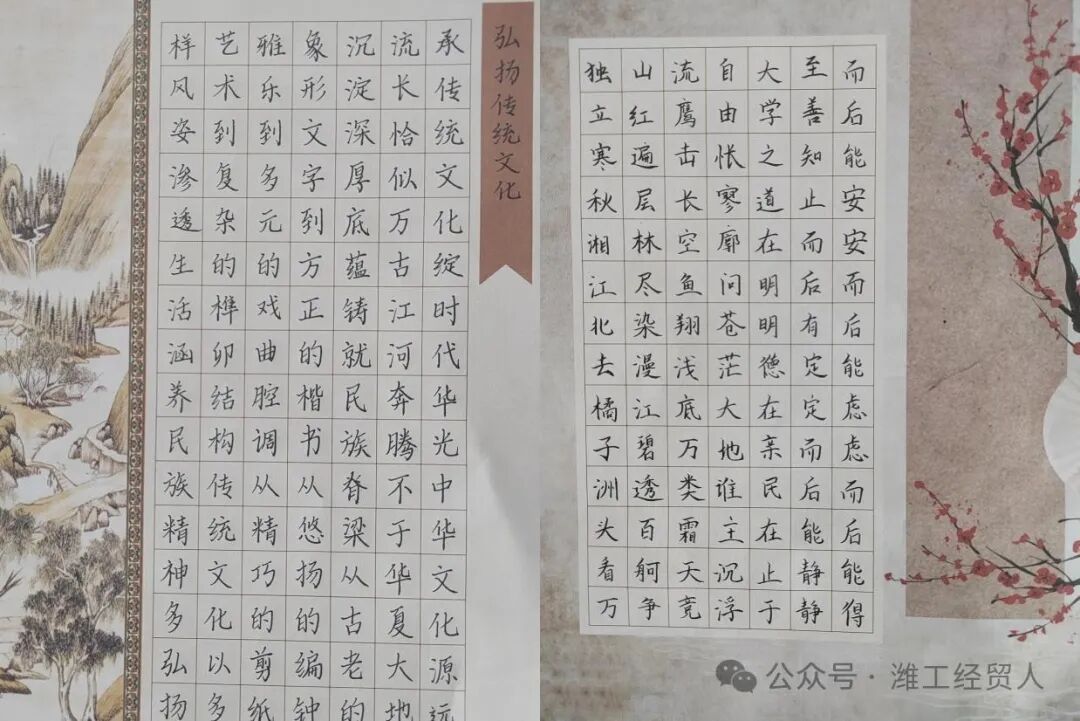 弘扬传统文化
承传统文化绽时代华光中华文化源远
流长恰似万古江河奔腾不于华夏大地
沉淀深厚底蕴铸就民族脊梁从古老的
象形文字到方正的楷书从悠扬的编钟
雅乐到多元的戏曲腔调从精巧的剪纸
艺术到复杂的榫卯结构传统文化以多
样风姿渗透生活涵养民族精神多弘扬
独立寒秋湘江北去橘子洲头看万
山红遍层林尽染漫江碧透百舸争
流鹰击长空鱼翔浅底万类霜天竞
自由怅寥廓问苍茫大地谁主沉浮
大学之道在明明德在亲民在止于
至善知止而后有定定而后能静静
而后能安安而后能虑虑而后能得
公众号·潍工经贸人